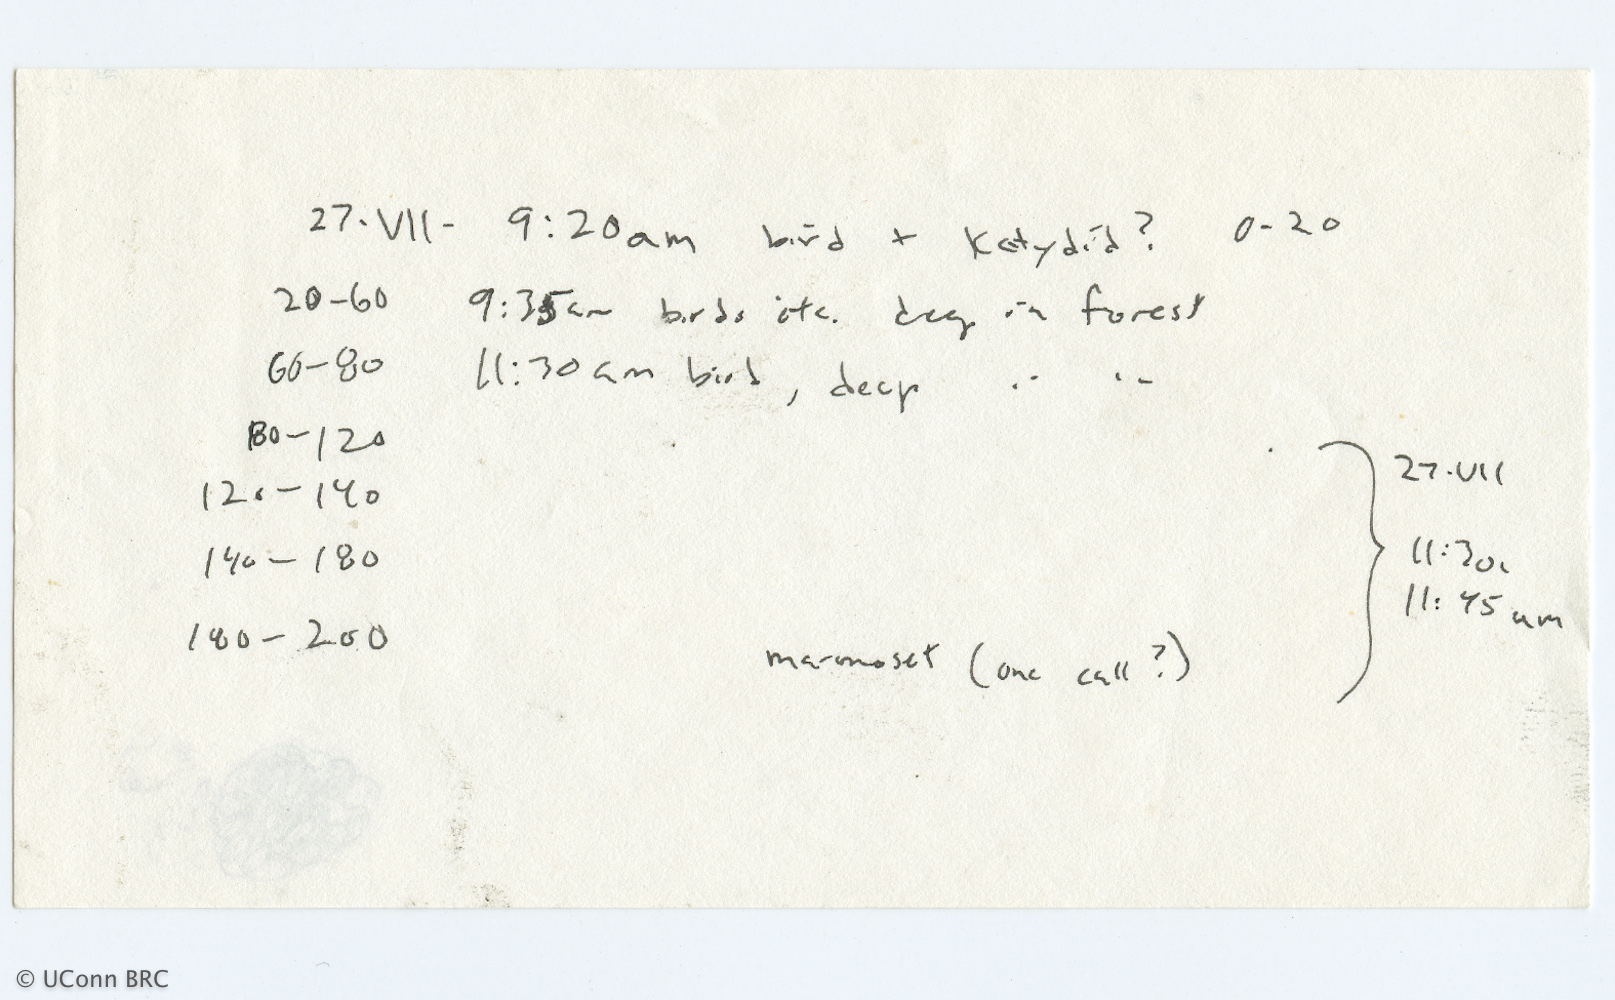 27.VII- 9:20am bird + Katydid? 0-20
20-60 9:35am birds etc. deep in forest
60-80 11:30am bird, deep " "
80-120
120-140
140-180
180-200 marmoset (one call?)
27.VII
11:30
11:45am
© UConn BRC